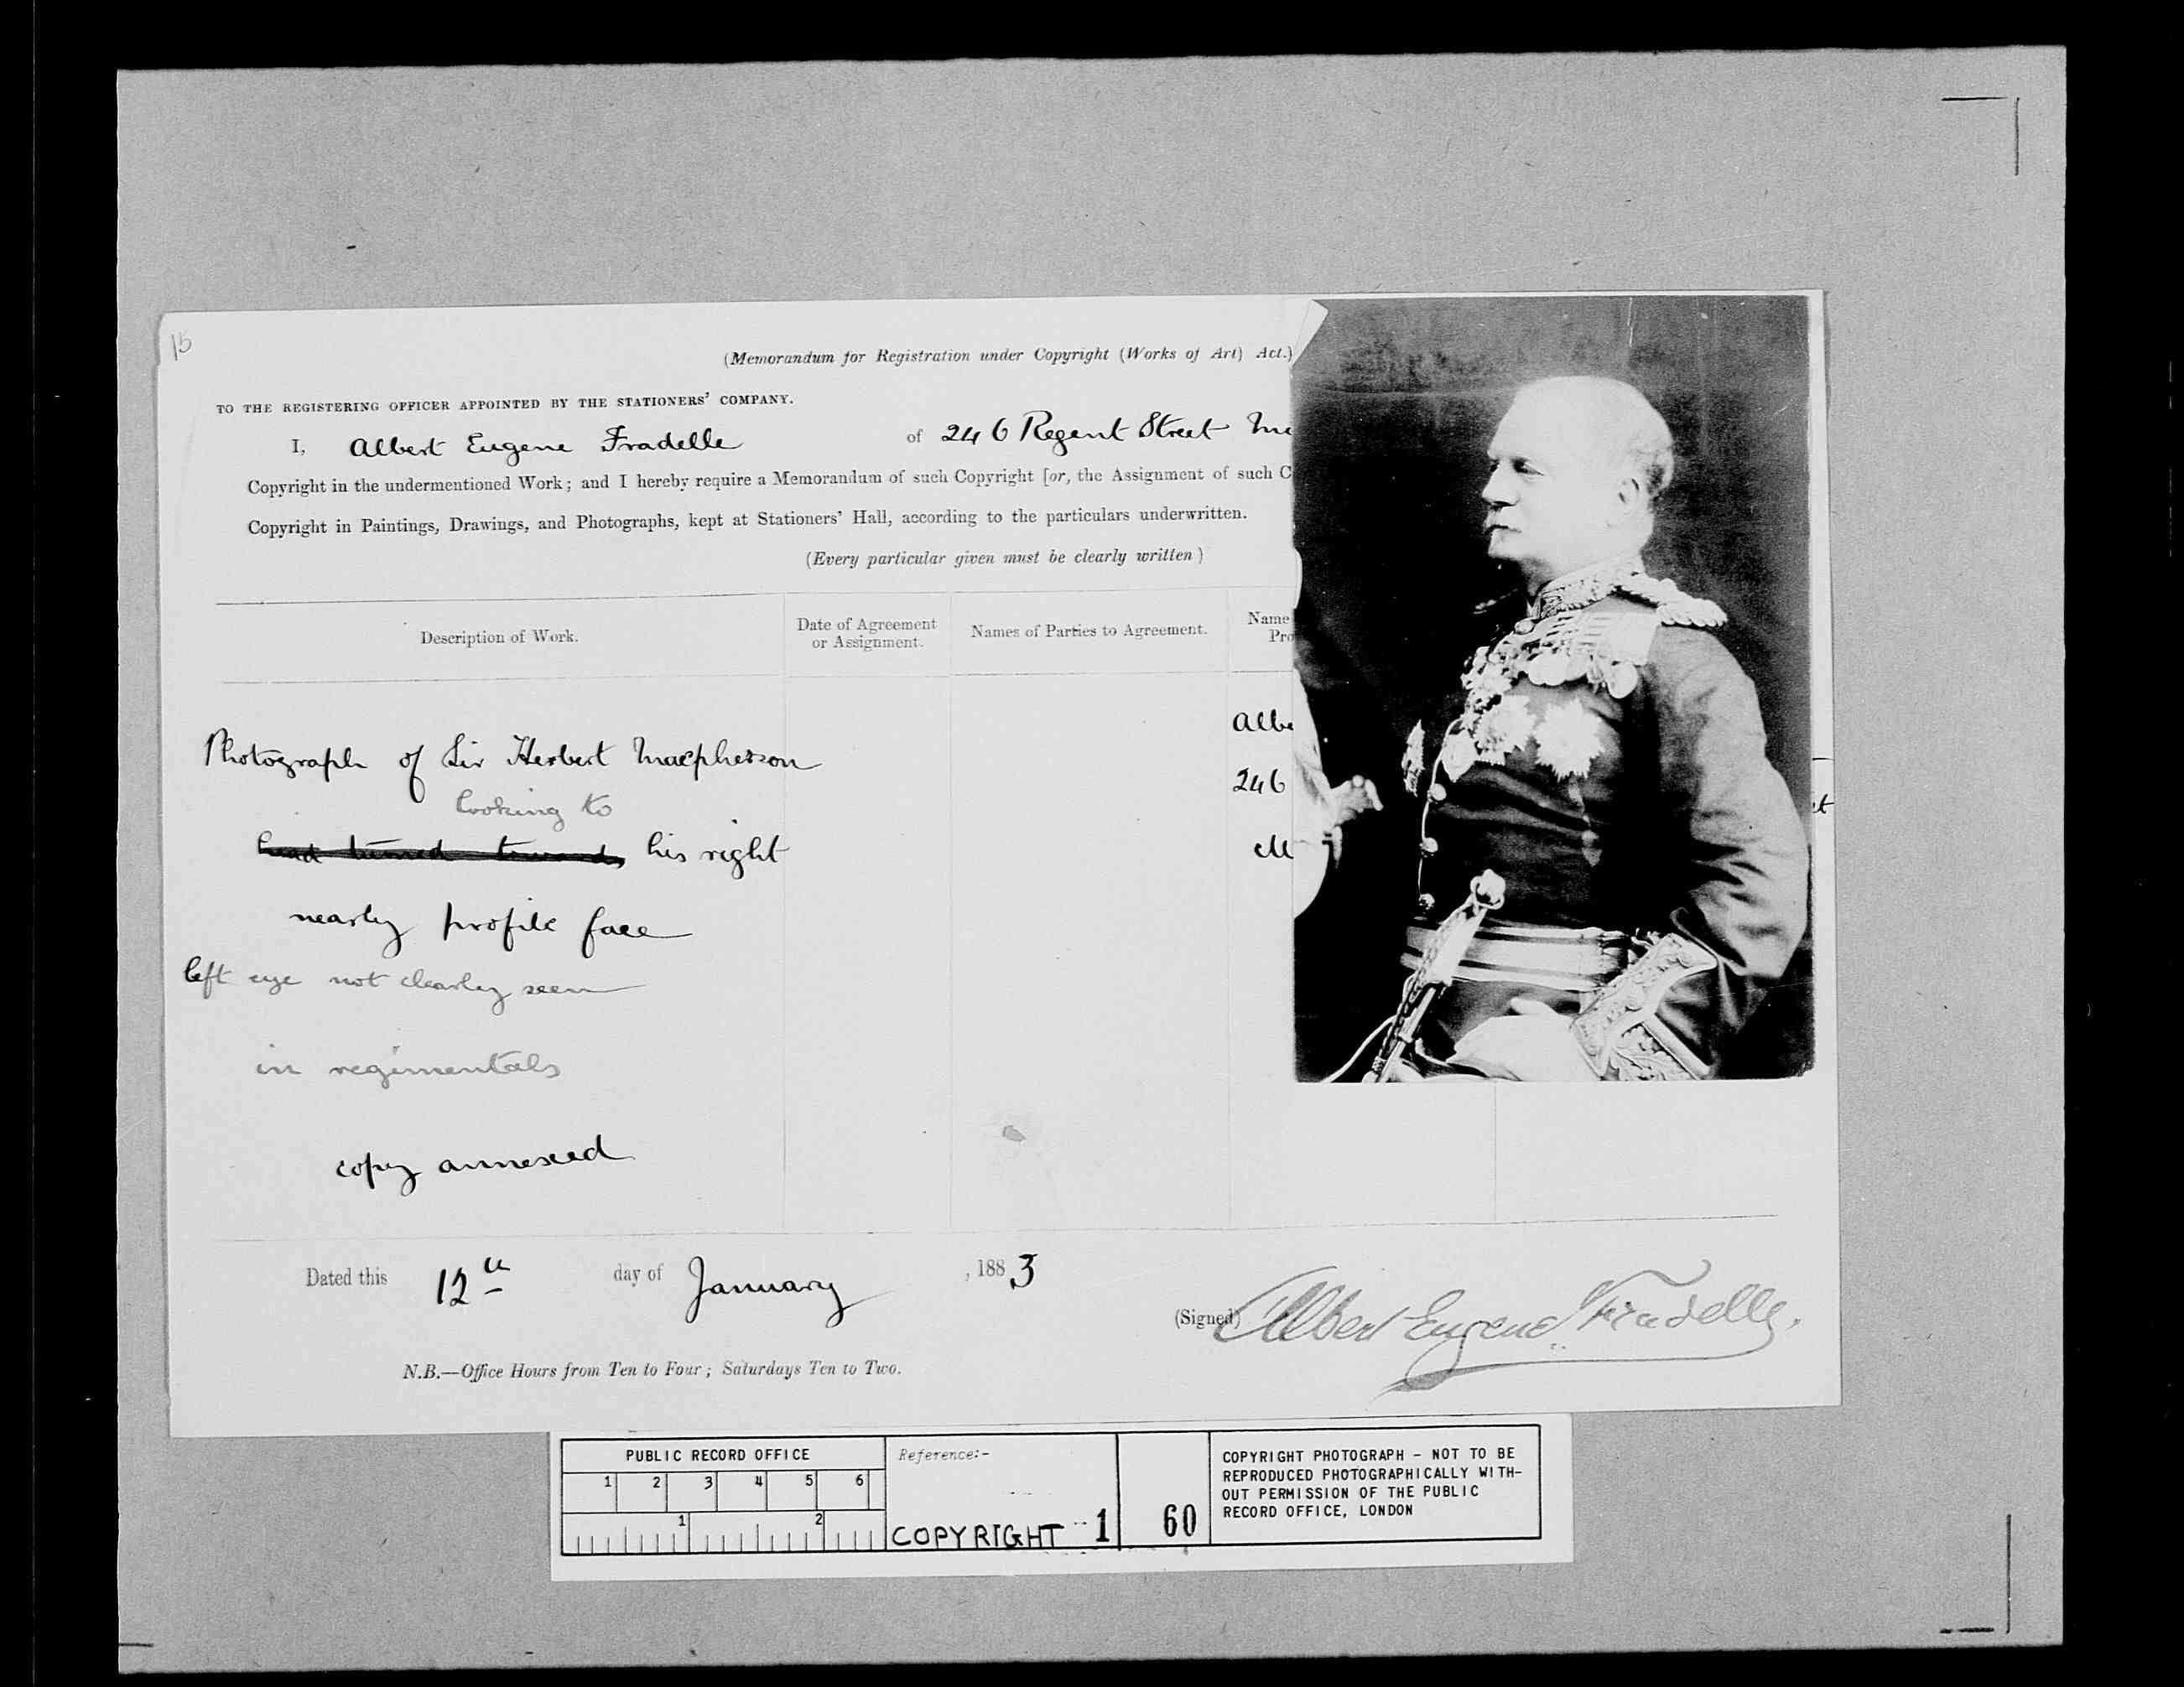 15
(Memorandum for Registration under Copyright (Works of Art) Act.)
TO THE REGISTERING OFFICER APPOINTED BY THE STATIONERS' COMPANY.
I, Albert Eugene Fradelle of 246 Regent Street
Copyright in the undermentioned Work; and I hereby require a Memorandum of such Copyright [or, the Assignment of such C
Copyright in Paintings, Drawings, and Photographs, kept at Stationers' Hall, according to the particulars underwritten.
(Every particular given must be clearly written)
Description of Work.
Date of Agreement
or Assignment.
Names of Parties to Agreement.
Name
Pro
Photograph of Sir Herbert Macpherson
looking to
head turned towards his right
nearly profile face
left eye not clearly seen
in regimentals
copy annexed
Albe
246
Dated this 12th day of January, 1883
(Signed) Albert Eugene Fradelle.
N.B.—Office Hours from Ten to Four; Saturdays Ten to Two.
PUBLIC RECORD OFFICE
1 2 3 4 5 6
1 2
Reference:-
COPYRIGHT 1
60
COPYRIGHT PHOTOGRAPH - NOT TO BE
REPRODUCED PHOTOGRAPHICALLY WITH-
OUT PERMISSION OF THE PUBLIC
RECORD OFFICE, LONDON